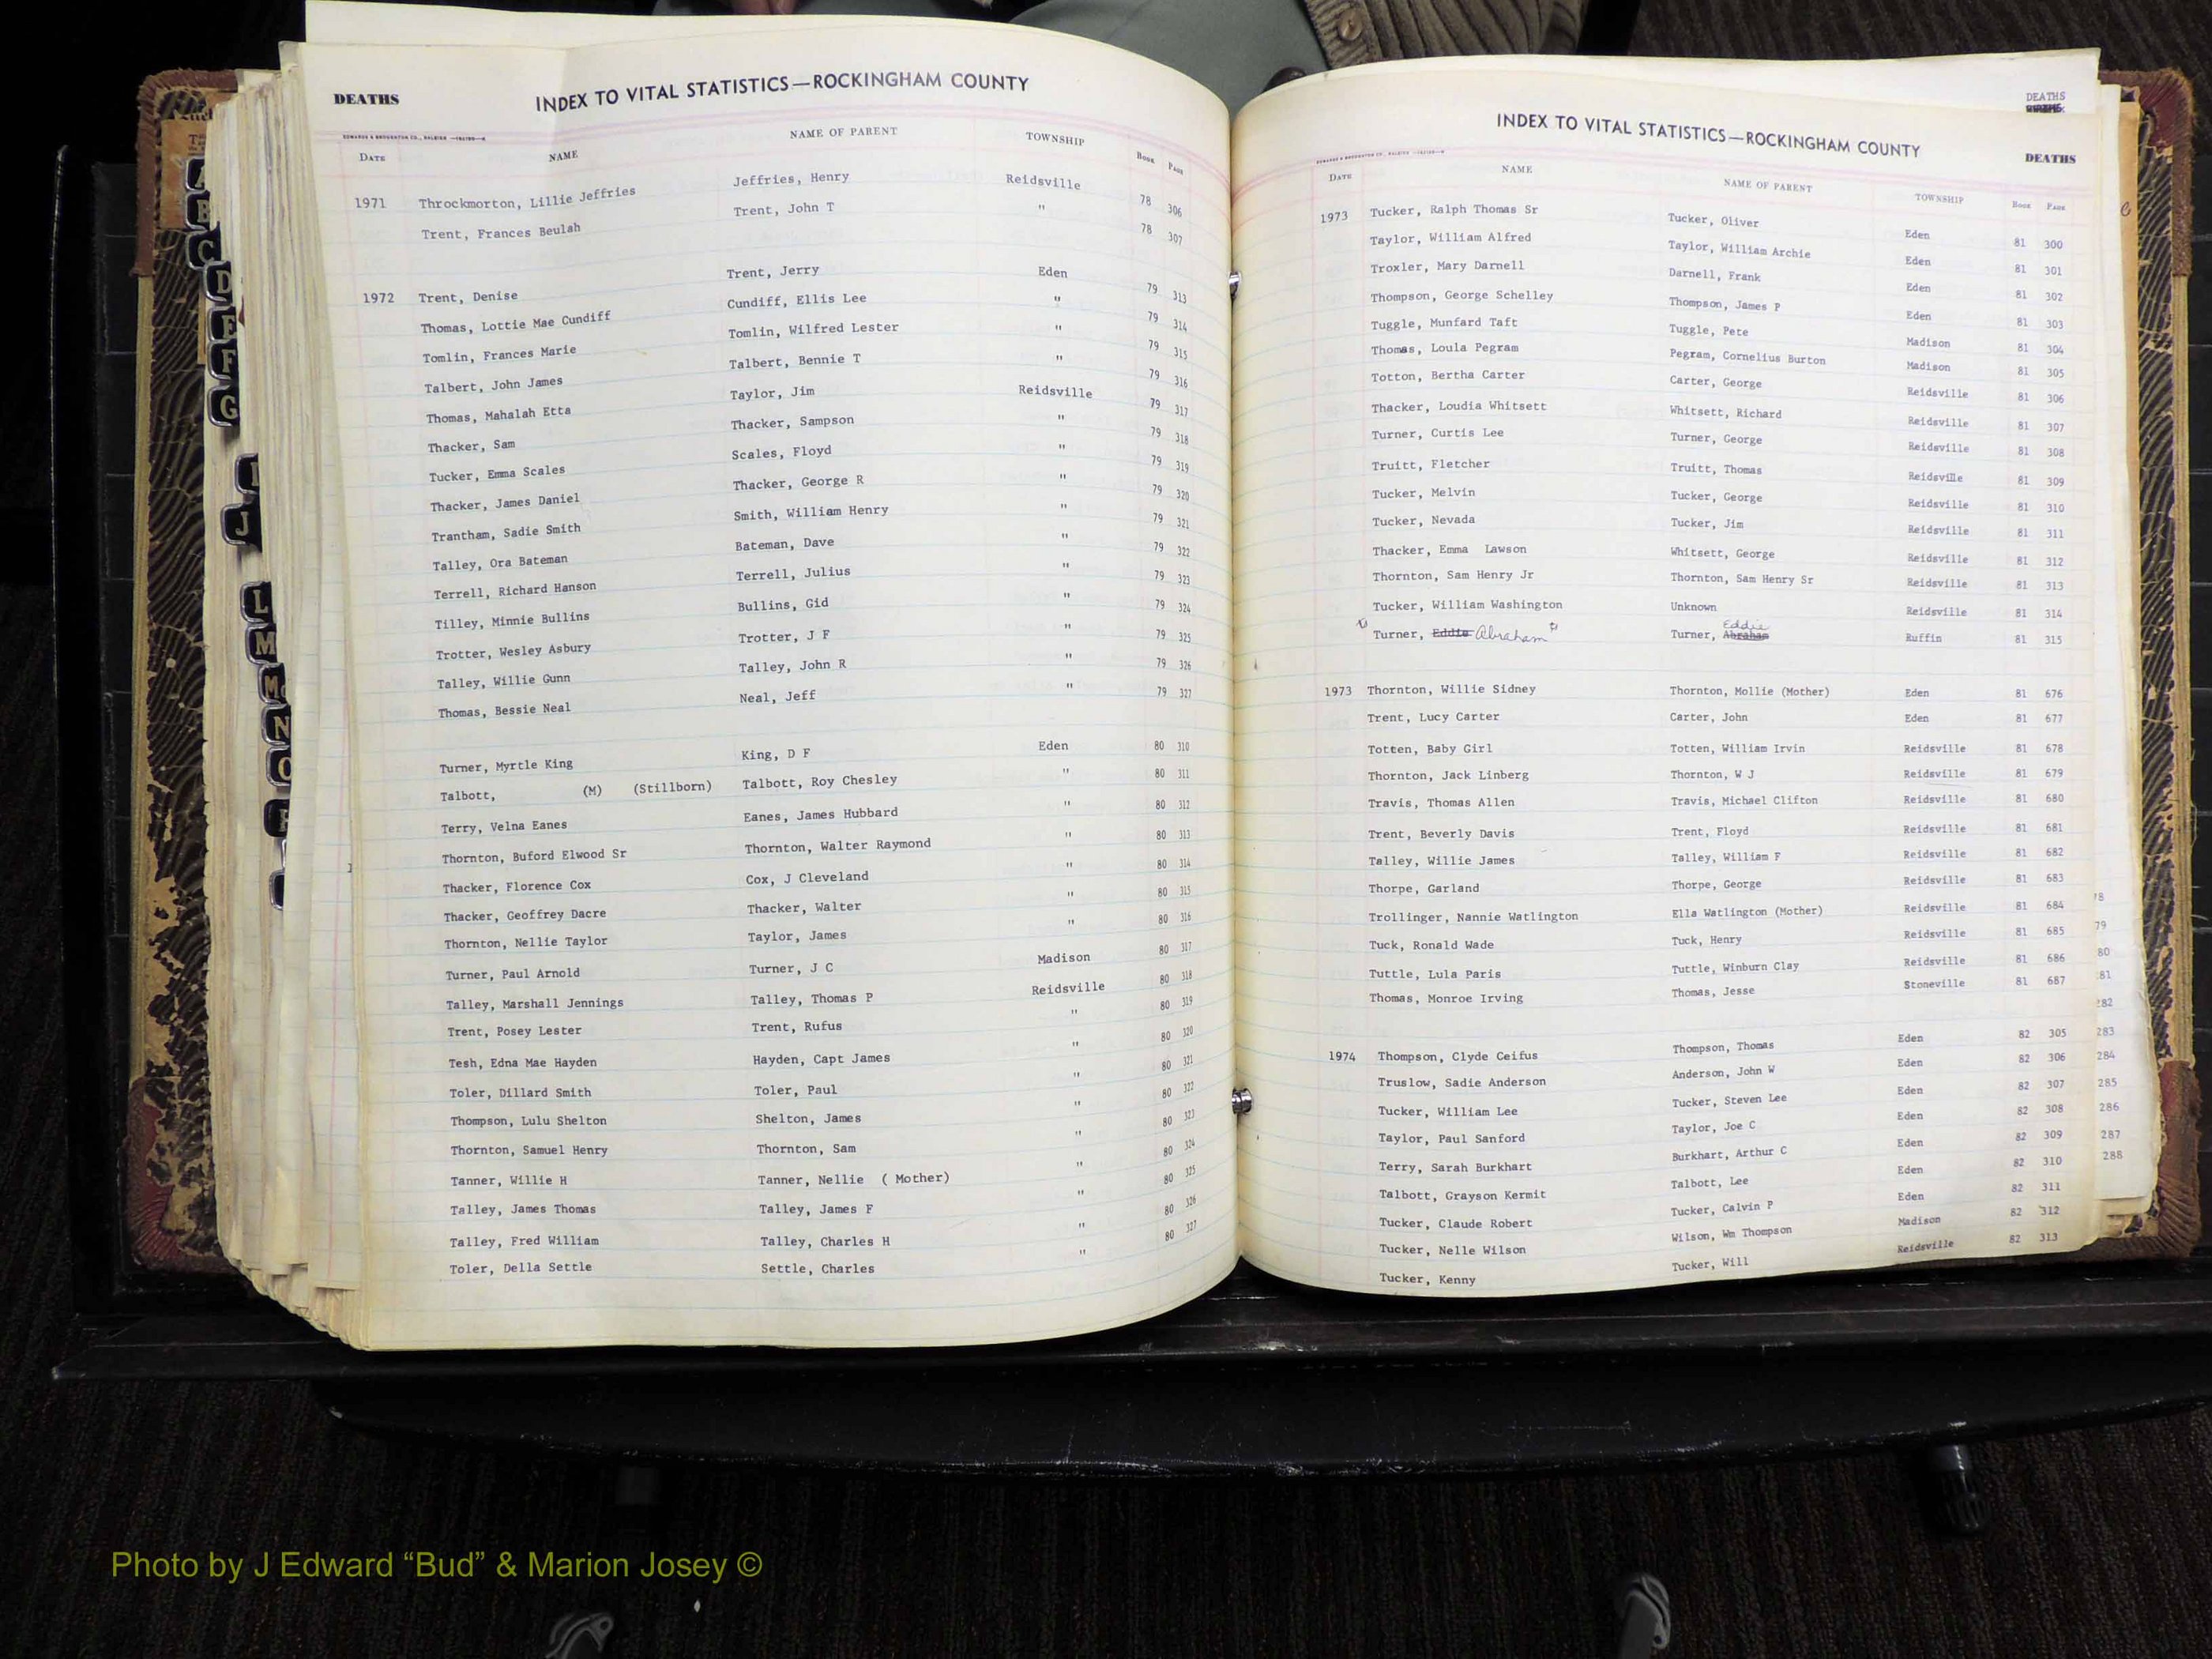 DEATHS
INDEX TO VITAL STATISTICS—ROCKINGHAM COUNTY
DATE NAME NAME OF PARENT TOWNSHIP BOOK PAGE
1971 Throckmorton, Lillie Jeffries Jeffries, Henry Reidsville 78 306
Trent, Frances Beulah Trent, John T " 78 307
1972 Trent, Denise Trent, Jerry Eden 79 313
Thomas, Lottie Mae Cundiff Cundiff, Ellis Lee " 79 314
Tomlin, Frances Marie Tomlin, Wilfred Lester " 79 315
Talbert, John James Talbert, Bennie T " 79 316
Thomas, Mahalah Etta Taylor, Jim Reidsville 79 317
Thacker, Sam Thacker, Sampson " 79 318
Tucker, Emma Scales Scales, Floyd " 79 319
Thacker, James Daniel Thacker, George R " 79 320
Trantham, Sadie Smith Smith, William Henry " 79 321
Talley, Ora Bateman Bateman, Dave " 79 322
Terrell, Richard Hanson Terrell, Julius " 79 323
Tilley, Minnie Bullins Bullins, Gid " 79 324
Trotter, Wesley Asbury Trotter, J F " 79 325
Talley, Willie Gunn Talley, John R " 79 326
Thomas, Bessie Neal Neal, Jeff " 79 327
Turner, Myrtle King King, D F Eden 80 310
Talbott, (M) (Stillborn) Talbott, Roy Chesley " 80 311
Terry, Velna Eanes Eanes, James Hubbard " 80 312
Thornton, Buford Elwood Sr Thornton, Walter Raymond " 80 313
Thacker, Florence Cox Cox, J Cleveland " 80 314
Thacker, Geoffrey Dacre Thacker, Walter " 80 315
Thornton, Nellie Taylor Taylor, James " 80 316
Turner, Paul Arnold Turner, J C Madison 80 317
Talley, Marshall Jennings Talley, Thomas P Reidsville 80 318
Trent, Posey Lester Trent, Rufus " 80 319
Tesh, Edna Mae Hayden Hayden, Capt James " 80 320
Toler, Dillard Smith Toler, Paul " 80 321
Thompson, Lulu Shelton Shelton, James " 80 322
Thornton, Samuel Henry Thornton, Sam " 80 323
Tanner, Willie H Tanner, Nellie ( Mother) " 80 324
Talley, James Thomas Talley, James F " 80 325
Talley, Fred William Talley, Charles H " 80 326
Toler, Della Settle Settle, Charles " 80 327
DEATHS
INDEX TO VITAL STATISTICS—ROCKINGHAM COUNTY
DEATHS
DATE NAME NAME OF PARENT TOWNSHIP BOOK PAGE
1973 Tucker, Ralph Thomas Sr Tucker, Oliver Eden 81 300
Taylor, William Alfred Taylor, William Archie Eden 81 301
Troxler, Mary Darnell Darnell, Frank Eden 81 302
Thompson, George Schelley Thompson, James P Eden 81 303
Tuggle, Munfard Taft Tuggle, Pete Madison 81 304
Thomas, Loula Pegram Pegram, Cornelius Burton Madison 81 305
Totton, Bertha Carter Carter, George Reidsville 81 306
Thacker, Loudia Whitsett Whitsett, Richard Reidsville 81 307
Turner, Curtis Lee Turner, George Reidsville 81 308
Truitt, Fletcher Truitt, Thomas Reidsville 81 309
Tucker, Melvin Tucker, George Reidsville 81 310
Tucker, Nevada Tucker, Jim Reidsville 81 311
Thacker, Emma Lawson Whitsett, George Reidsville 81 312
Thornton, Sam Henry Jr Thornton, Sam Henry Sr Reidsville 81 313
Tucker, William Washington Unknown Reidsville 81 314
Turner, Eddie Abraham Turner, Abraham Eddie Ruffin 81 315
1973 Thornton, Willie Sidney Thornton, Mollie (Mother) Eden 81 676
Trent, Lucy Carter Carter, John Eden 81 677
Totten, Baby Girl Totten, William Irvin Reidsville 81 678
Thornton, Jack Linberg Thornton, W J Reidsville 81 679
Travis, Thomas Allen Travis, Michael Clifton Reidsville 81 680
Trent, Beverly Davis Trent, Floyd Reidsville 81 681
Talley, Willie James Talley, William F Reidsville 81 682
Thorpe, Garland Thorpe, George Reidsville 81 683
Trollinger, Nannie Watlington Ella Watlington (Mother) Reidsville 81 684
Tuck, Ronald Wade Tuck, Henry Reidsville 81 685
Tuttle, Lula Paris Tuttle, Winburn Clay Reidsville 81 686
Thomas, Monroe Irving Thomas, Jesse Stoneville 81 687
1974 Thompson, Clyde Ceifus Thompson, Thomas Eden 82 305
Truslow, Sadie Anderson Anderson, John W Eden 82 306
Tucker, William Lee Tucker, Steven Lee Eden 82 307
Taylor, Paul Sanford Taylor, Joe C Eden 82 308
Terry, Sarah Burkhart Burkhart, Arthur C Eden 82 309
Talbott, Grayson Kermit Talbott, Lee Eden 82 310
Tucker, Claude Robert Tucker, Calvin P Eden 82 311
Tucker, Nelle Wilson Wilson, Wm Thompson Madison 82 312
Tucker, Kenny Tucker, Will Reidsville 82 313
78
79
80
81
282
283
284
285
286
287
288
A
B
C
D
E
F
G
J
L
M
Mc
N
O
Photo by J Edward “Bud” & Marion Josey ©